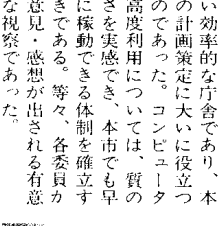 い効率的な庁舎であり、本
の計画策定に大いに役立つ
のであった。コンピュータ
高度利用については、質の
さを実感でき、本市でも早
に稼動できる体制を確立す
きである。等々、各委員か
意見・感想が出される有意
な視察であった。